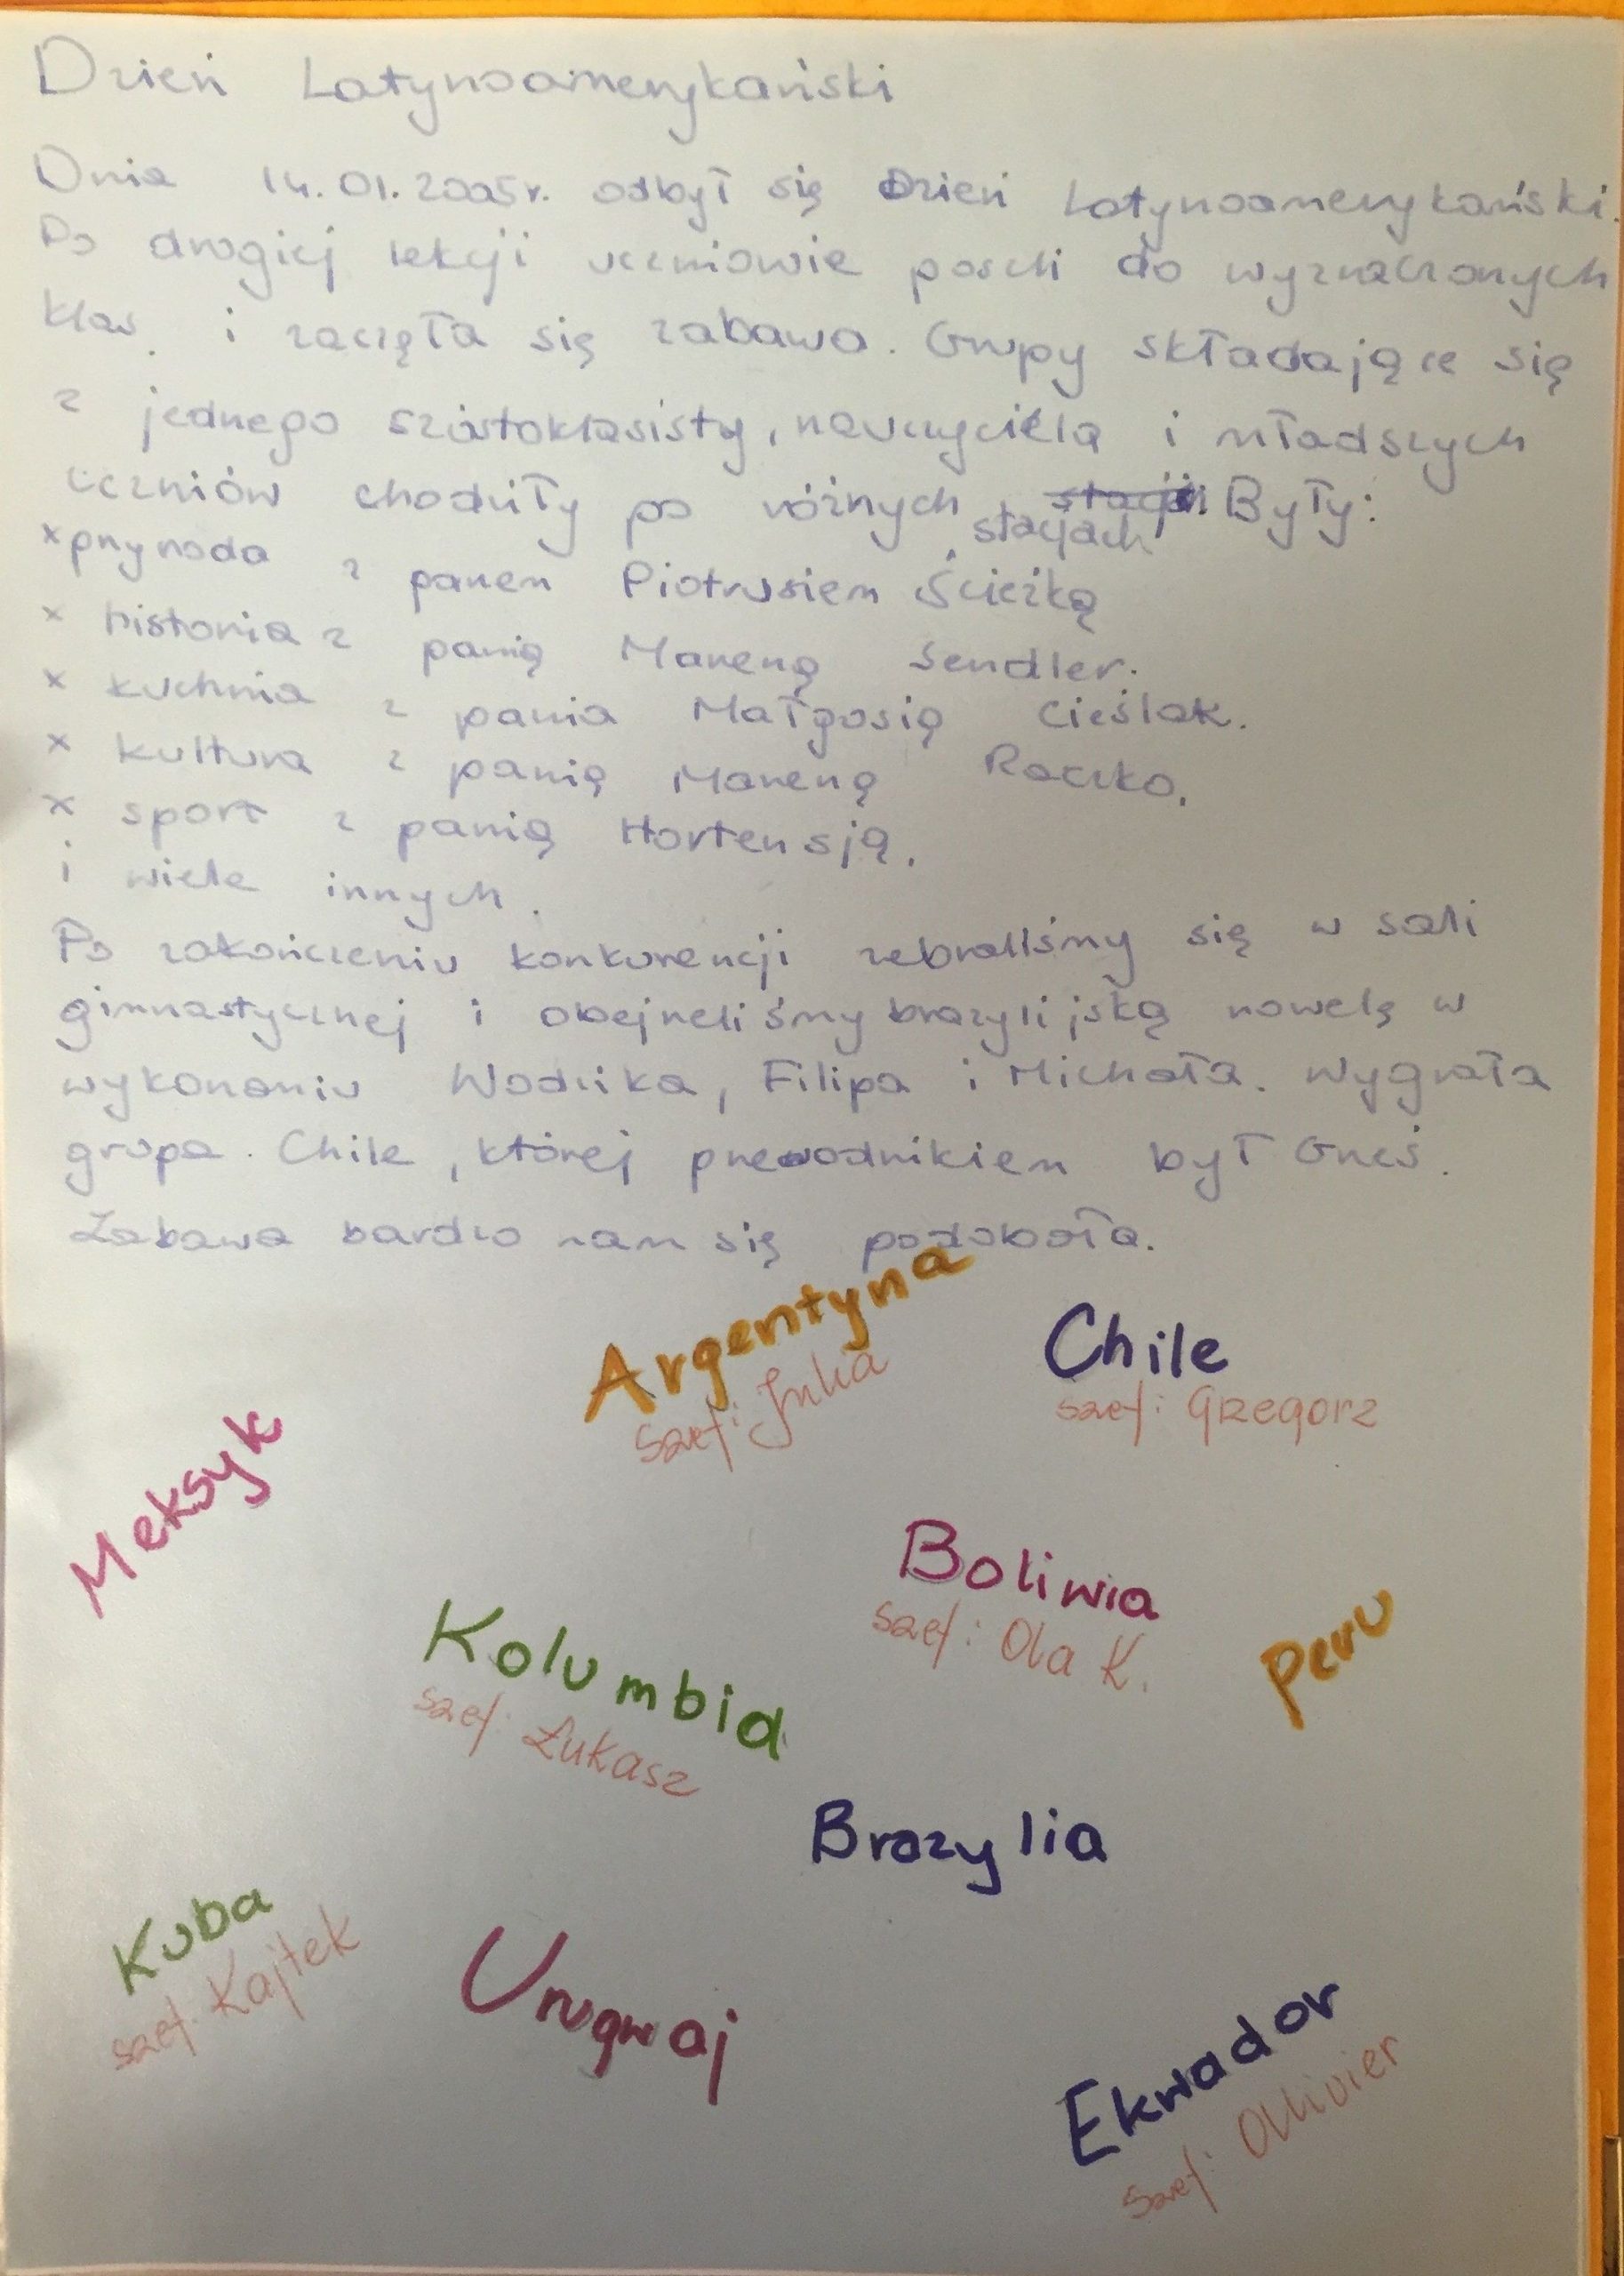 Dzień Latynoamerykański
Dnia 14.01.2005r. odbył się Dzień Latynoamerykański.
Po drugiej lekcji uczniowie poszli do wyznaczonych
klas i zaczęła się zabawa. Grupy składające się
z jednego szóstoklasisty, nauczyciela i młodszych
uczniów chodziły po różnych stacjach. Były:
x przyroda z panem Piotrusiem Ścieżką
x historia z panią Marzeną Sendler.
x kuchnia z pania Małgosią Cieślak.
x kultura z panią Marzeną Raczko.
x sport z panią Hortensją.
i wiele innych.
Po zakończeniu konkurencji zebraliśmy się w sali
gimnastycznej i obejrzeliśmy brazylijską nowelę w
wykonaniu Wodzika, Filipa i Michała. Wygrała
grupa Chile, której przewodnikiem był Grześ.
Zabawa bardzo nam się podobała.
Argentyna
szef: Julia
Chile
szef: Grzegorz
Meksyk
Boliwia
szef: Ola K.
Peru
Kolumbia
szef: Łukasz
Brazylia
Kuba
szef: Kajtek
Urugwaj
Ekwador
szef: Ollivier